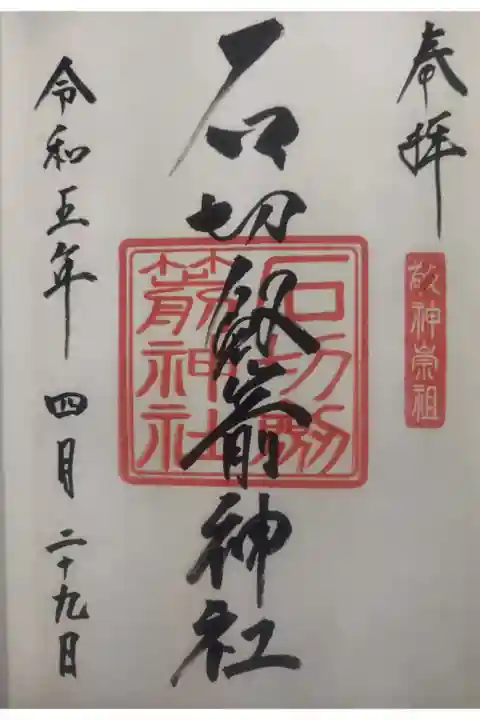 奉拝
敬神崇祖
石切劔箭神社
石切劔
箭神社
令和五年 四月 二十九日